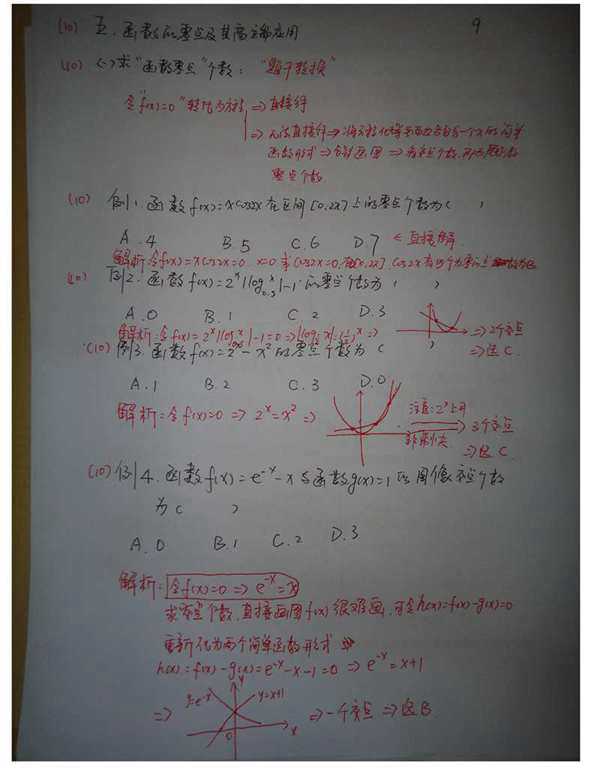 9
(10) 五.函数的零点及其高令解应用
(10) (一)求“函数零点”个数:“题干转换”
令“f(x)=0”转化为方程 ⇒ 直接解
⇒ 无法直接解 ⇒ 将方程化等号两边各自含一个x的简单
函数形式 ⇒ 分别画图 ⇒ 看交点个数,即为题
零点个数
(10) 例1.函数f(x)=xcos2x在区间[0.2π]上的零点个数为( )
A.4 B.5 C.6 D.7 ← 直接解
解析:令f(x)=xcos2x=0 x=0 或 cos2x=0,在[0.2π],cos2x有4个
(10) 例2.函数f(x)=2^x|log_{0.5}x|-1的零点个数为( )
A.0 B.1 C.2 D.3
解析:令f(x)=2^x|log x|-1=0 ⇒ |log x|=(½)^x ⇒ ⇒ 2个交点
⇒ 选C.
(10) 例3.函数f(x)=2^x-x²的零点个数为( )
A.1 B.2 C.3 D.0
解析:令f(x)=0 ⇒ 2^x=x² ⇒ 注意:2^x上升 非常快 ⇒ 3个交点
⇒ 选C
(10) 例4.函数f(x)=e^{-x}-x与函数g(x)=1的图像交点个数
为( )
A.0 B.1 C.2 D.3
解析:令f(x)=0 ⇒ e^{-x}=x
求交点个数,直接画图f(x)很难画,可令h(x)=f(x)-g(x)=0
重新化为两个简单函数形式
h(x)=f(x)-g(x)=e^{-x}-x-1=0 ⇒ e^{-x}=x+1
⇒ y=e^{-x} y y=x+1 0 x ⇒ 一个交点 ⇒ 选B